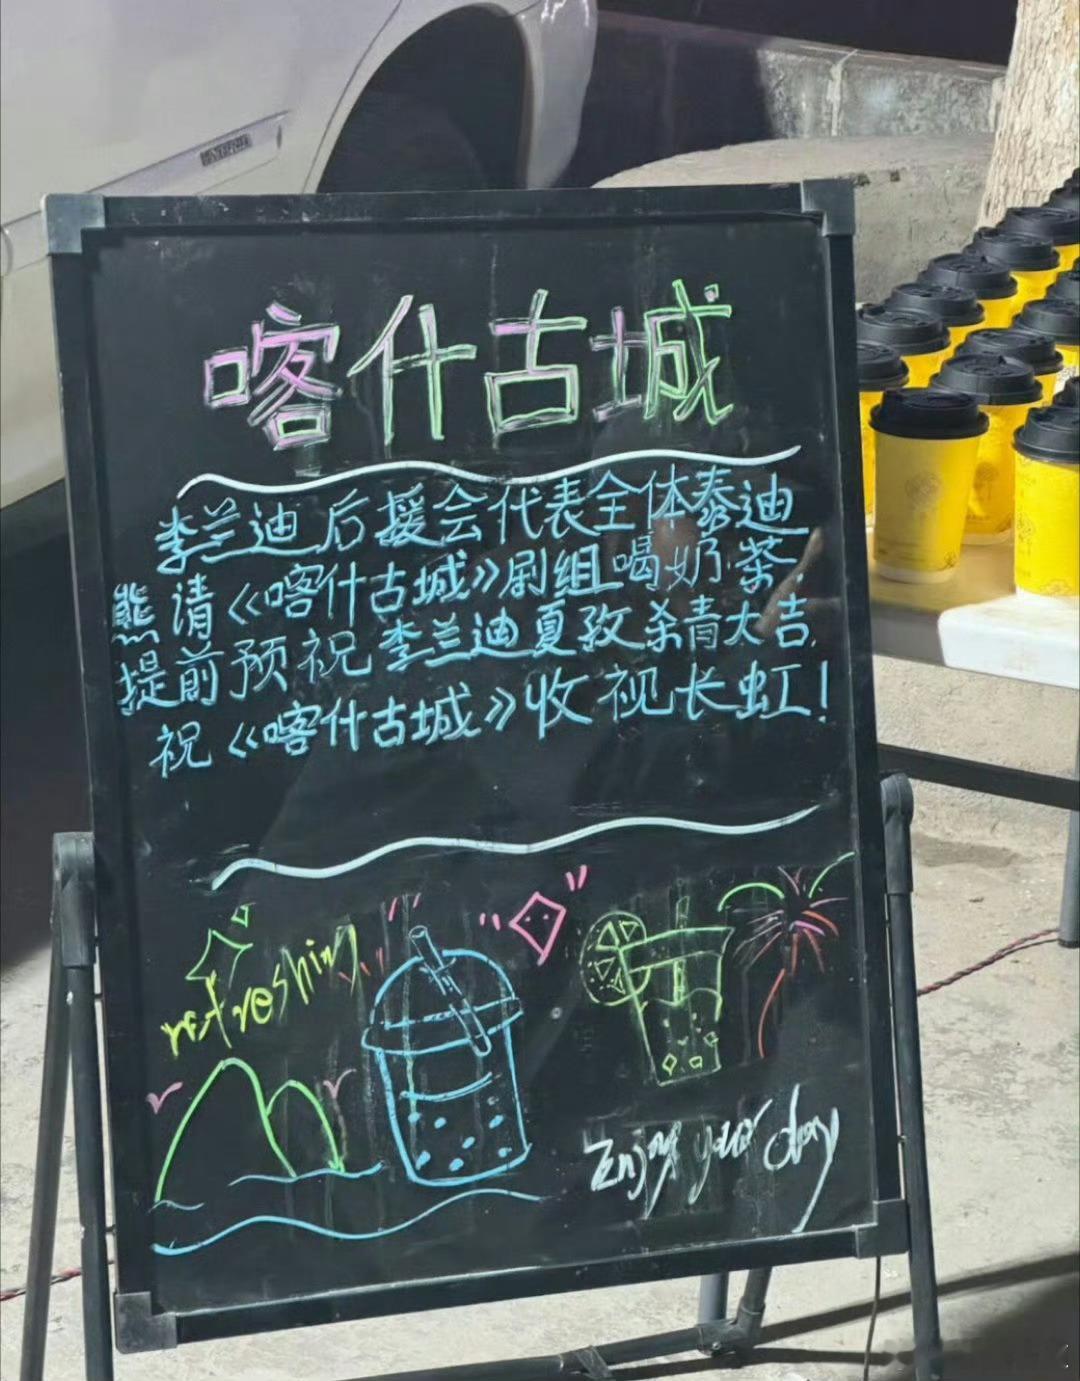 喀什古城
李兰迪后援会代表全体泰迪
熊请《喀什古城》剧组喝奶茶,
提前预祝李兰迪夏孜杀青大吉,
祝《喀什古城》收视长虹!
refreshing
Enjoy your day